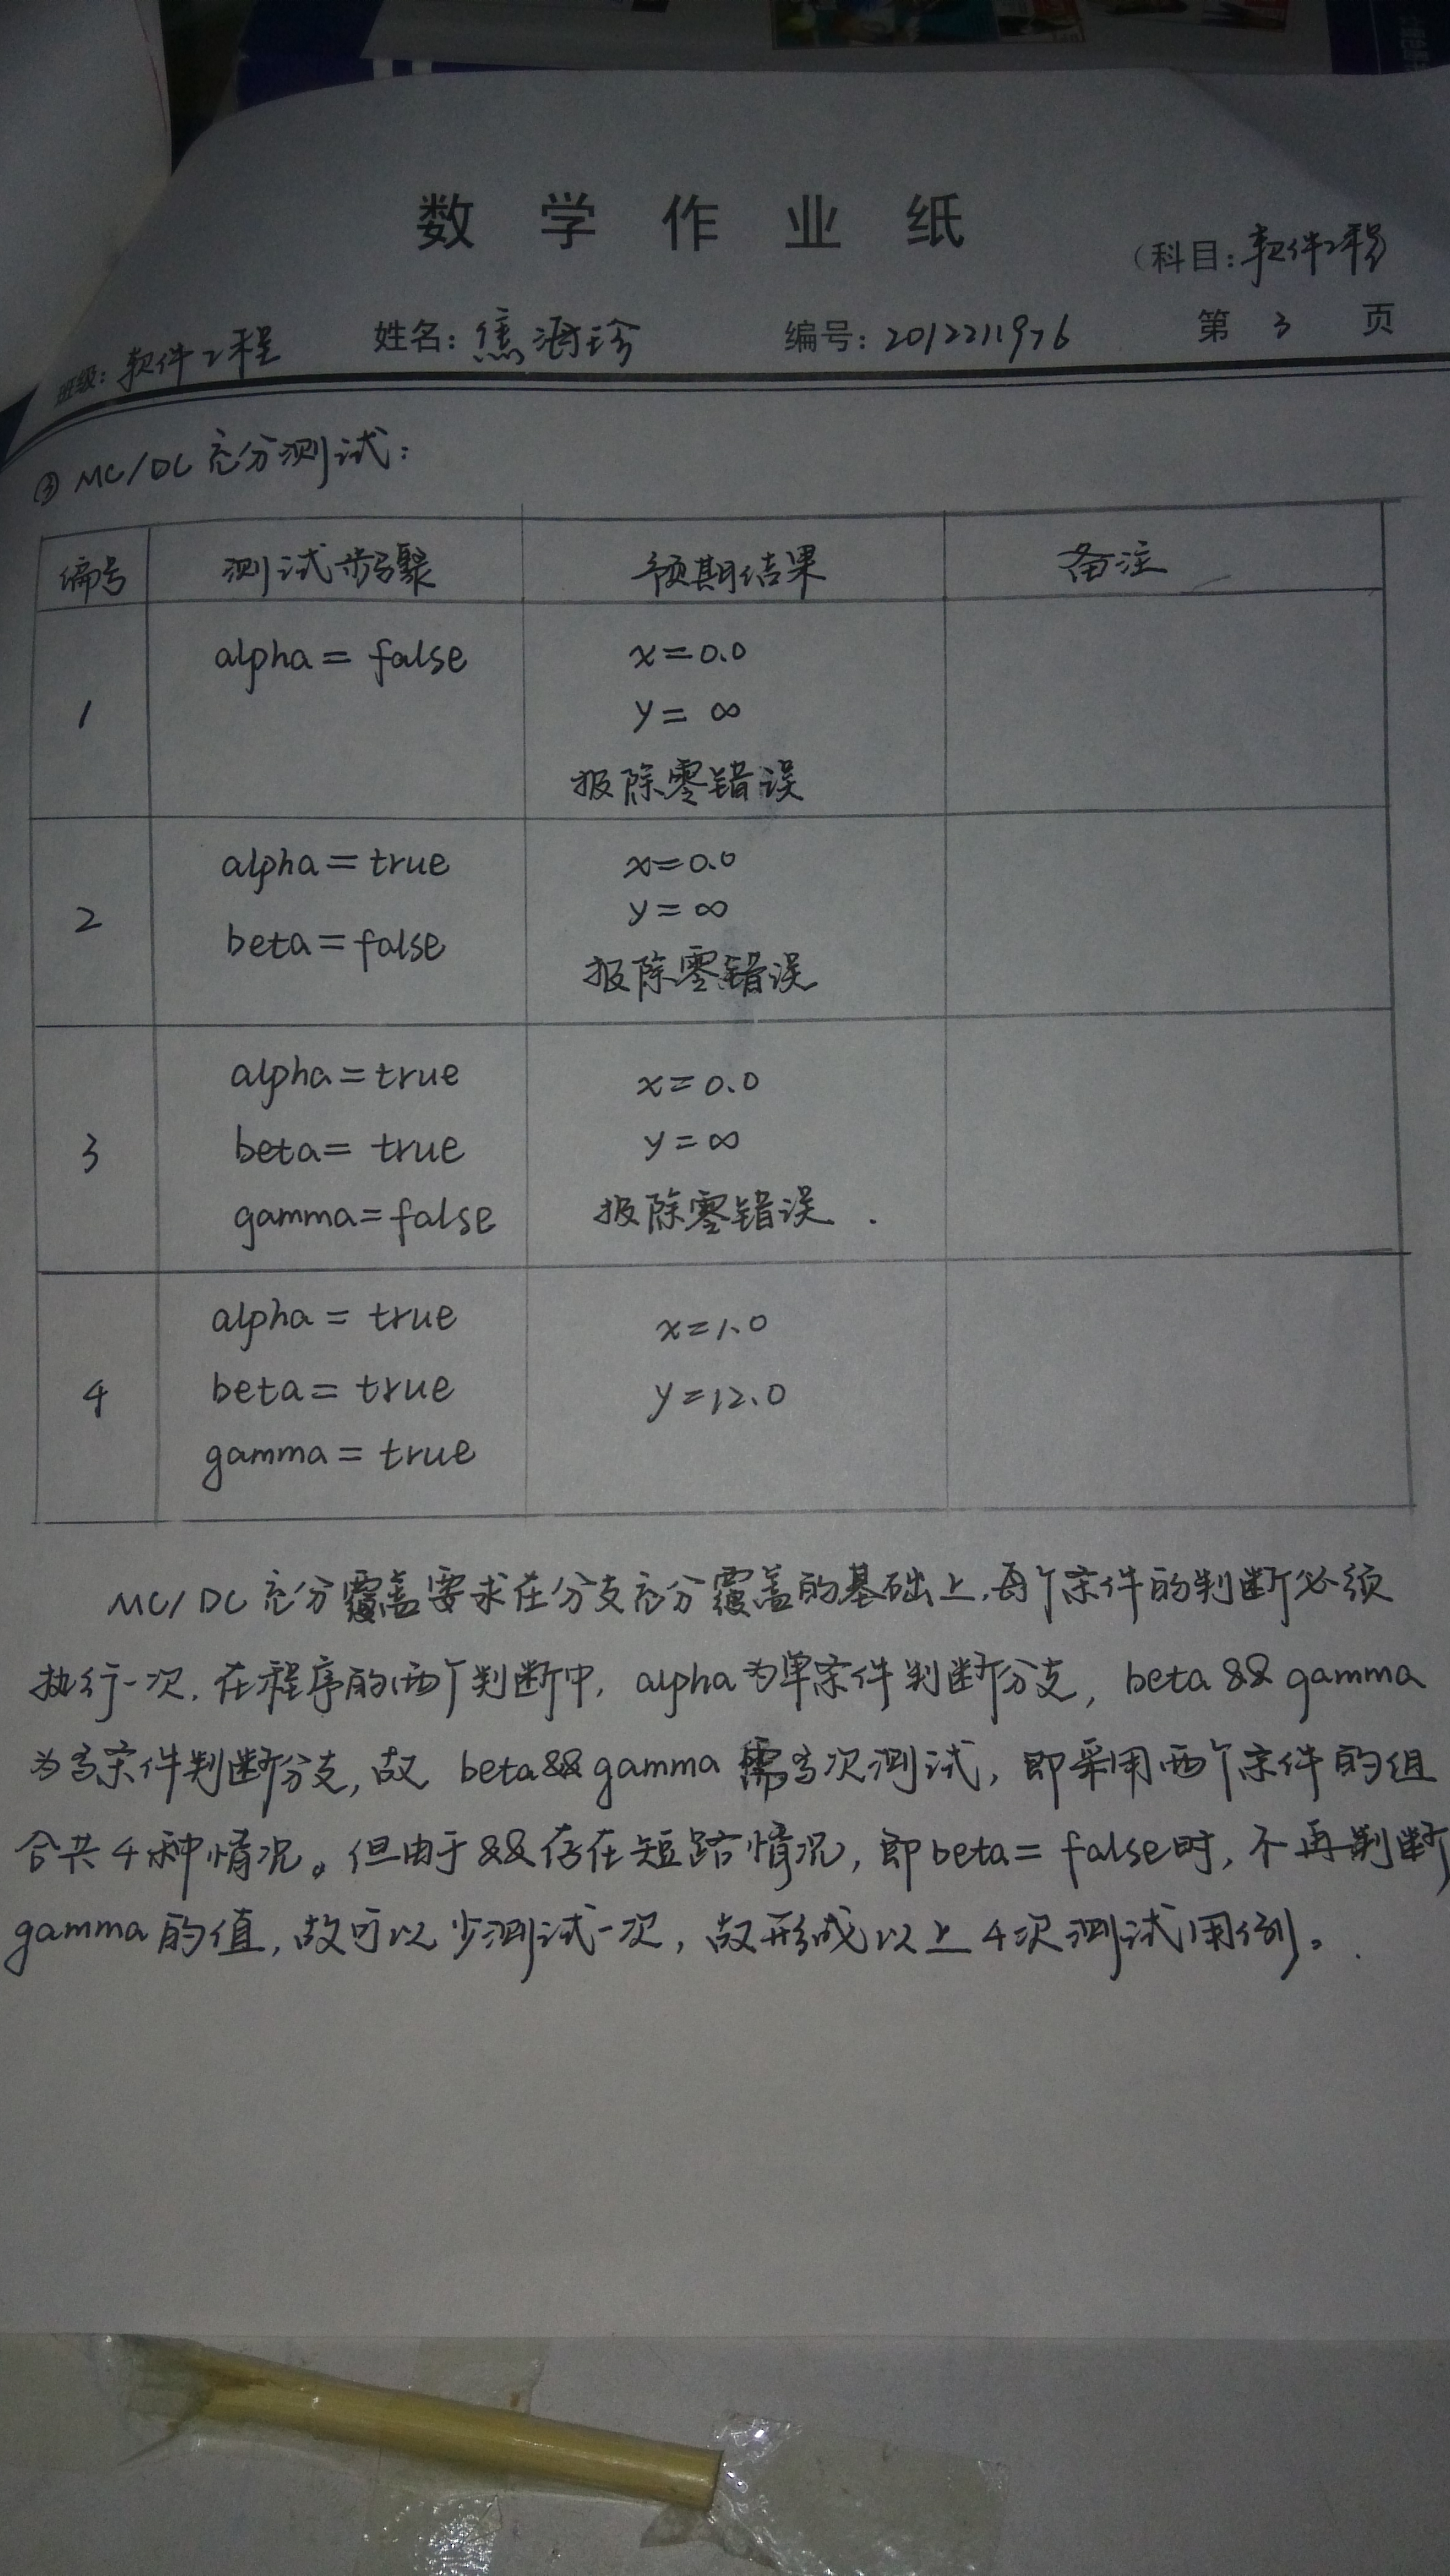 数学作业纸
(科目:软件工程)
班级:软件工程 姓名:焦海珍 编号:2012211976 第3页
③ MC/DC 充分测试:
编号 测试步骤 预期结果 备注
1 alpha = false x=0.0
y = ∞
报除零错误
2 alpha = true x=0.0
beta = false y = ∞
报除零错误
3 alpha = true x = 0.0
beta = true y = ∞
gamma = false 报除零错误.
4 alpha = true x=1.0
beta = true y=12.0
gamma = true
MC/DC 充分覆盖要求在分支充分覆盖的基础上,每个条件的判断必须
执行一次.在程序的两个判断中,alpha为单条件判断分支,beta && gamma
为多条件判断分支,故 beta && gamma 需多次测试,即采用两个条件的组
合共4种情况。但由于&&存在短路情况,即beta = false时,不再判断
gamma 的值,故可以少测试一次,故形成以上4次测试用例。